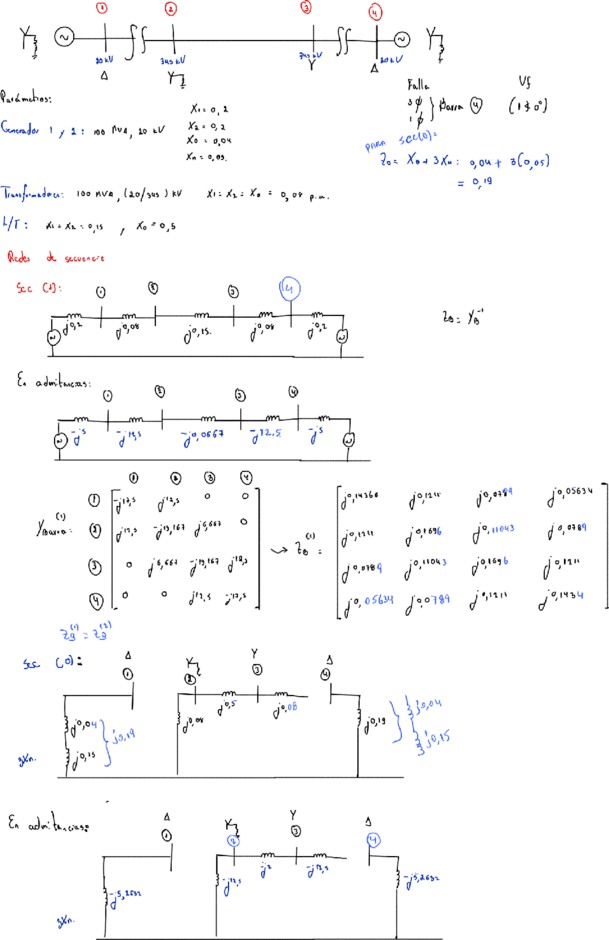 ① ② ③ ④
20 kV 345 kV 345 kV 20 kV
Δ Y Y Δ
Parámetros:
Generador 1 y 2: 100 MVA, 20 kV
X1 = 0,2
X2 = 0,2
X0 = 0,04
Xn = 0,05.
Falla Vf
3ϕ
1ϕ } Barra ④ (1∡0°)
para sec(0)=
Z0 = X0 + 3Xn: 0,04 + 3(0,05)
= 0,19
Transformadores: 100 MVA, (20/345) kV X1 = X2 = X0 = 0,08 p.u.
L/T: X1 = X2 = 0,15 , X0 = 0,5
Redes de secuencia
Sec (1):
① ② ③ ④
j0,2 j0,08 j0,15. j0,08 j0,2
ZB = YB⁻¹
En admitancias:
① ② ③ ④
-j5 -j12,5 -j0,0667 -j12.5 -j5
① ② ③ ④
YBarra: (1)
① -j17,5 j12,5 0 0
② j12,5 -j19,167 j6,667 0
③ 0 j6,667 -j19,167 j12,5
④ 0 0 j12,5 -j17,5
ZB (1) =
j0,14366 j0,1211 j0,0789 j0,05634
j0,1211 j0,1696 j0,11043 j0,0789
j0,0789 j0,11043 j0,1696 j0,1211
j0,05634 j0,0789 j0,1211 j0,1434
ZB(1) = ZB(2)
Sec (0):
Δ Y Y Δ
① ② ③ ④
j0,04 j0,15 } j0,19
3Xn.
j0,08 j0,5 j0,08 j0,19
j0,04
j0,15
En admitancias:
Δ Y Y Δ
① ② ③ ④
-j5,2632 -j12,5 -j2 -j12,5 -j5,2632
3Xn.